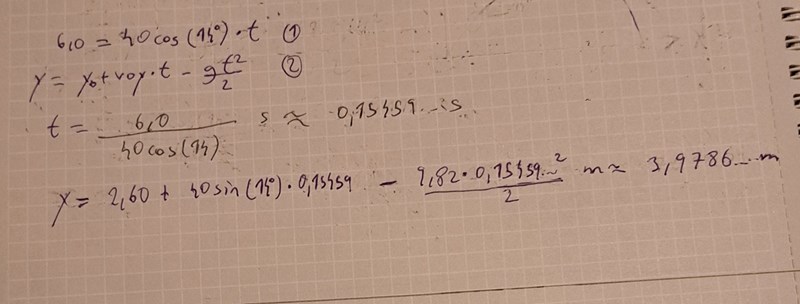 6,0 = 40cos(14°)·t ①
y = y₀ + v₀y·t - gt²/2 ②
t = 6,0/40cos(14) s ≈ 0,15459...s
y = 2,60 + 40sin(14°)·0,15459 - 9,82·0,15459...²/2 m ≈ 3,9786...m